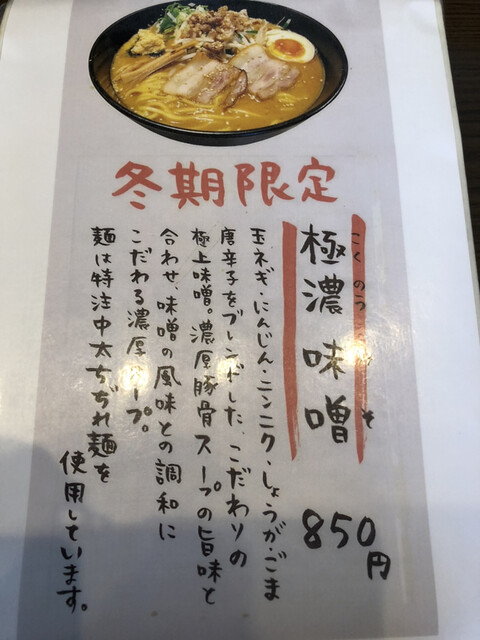 冬期限定
極濃味噌
こくのう　そ
850円
玉ネギ・にんじん・ニンニク・しょうが・ごま
唐辛子をブレンドした、こだわりの
極上味噌。濃厚豚骨スープの旨味と
合わせ、味噌の風味との調和に
こだわる濃厚スープ。
麺は特注中太ちぢれ麺を
使用しています。